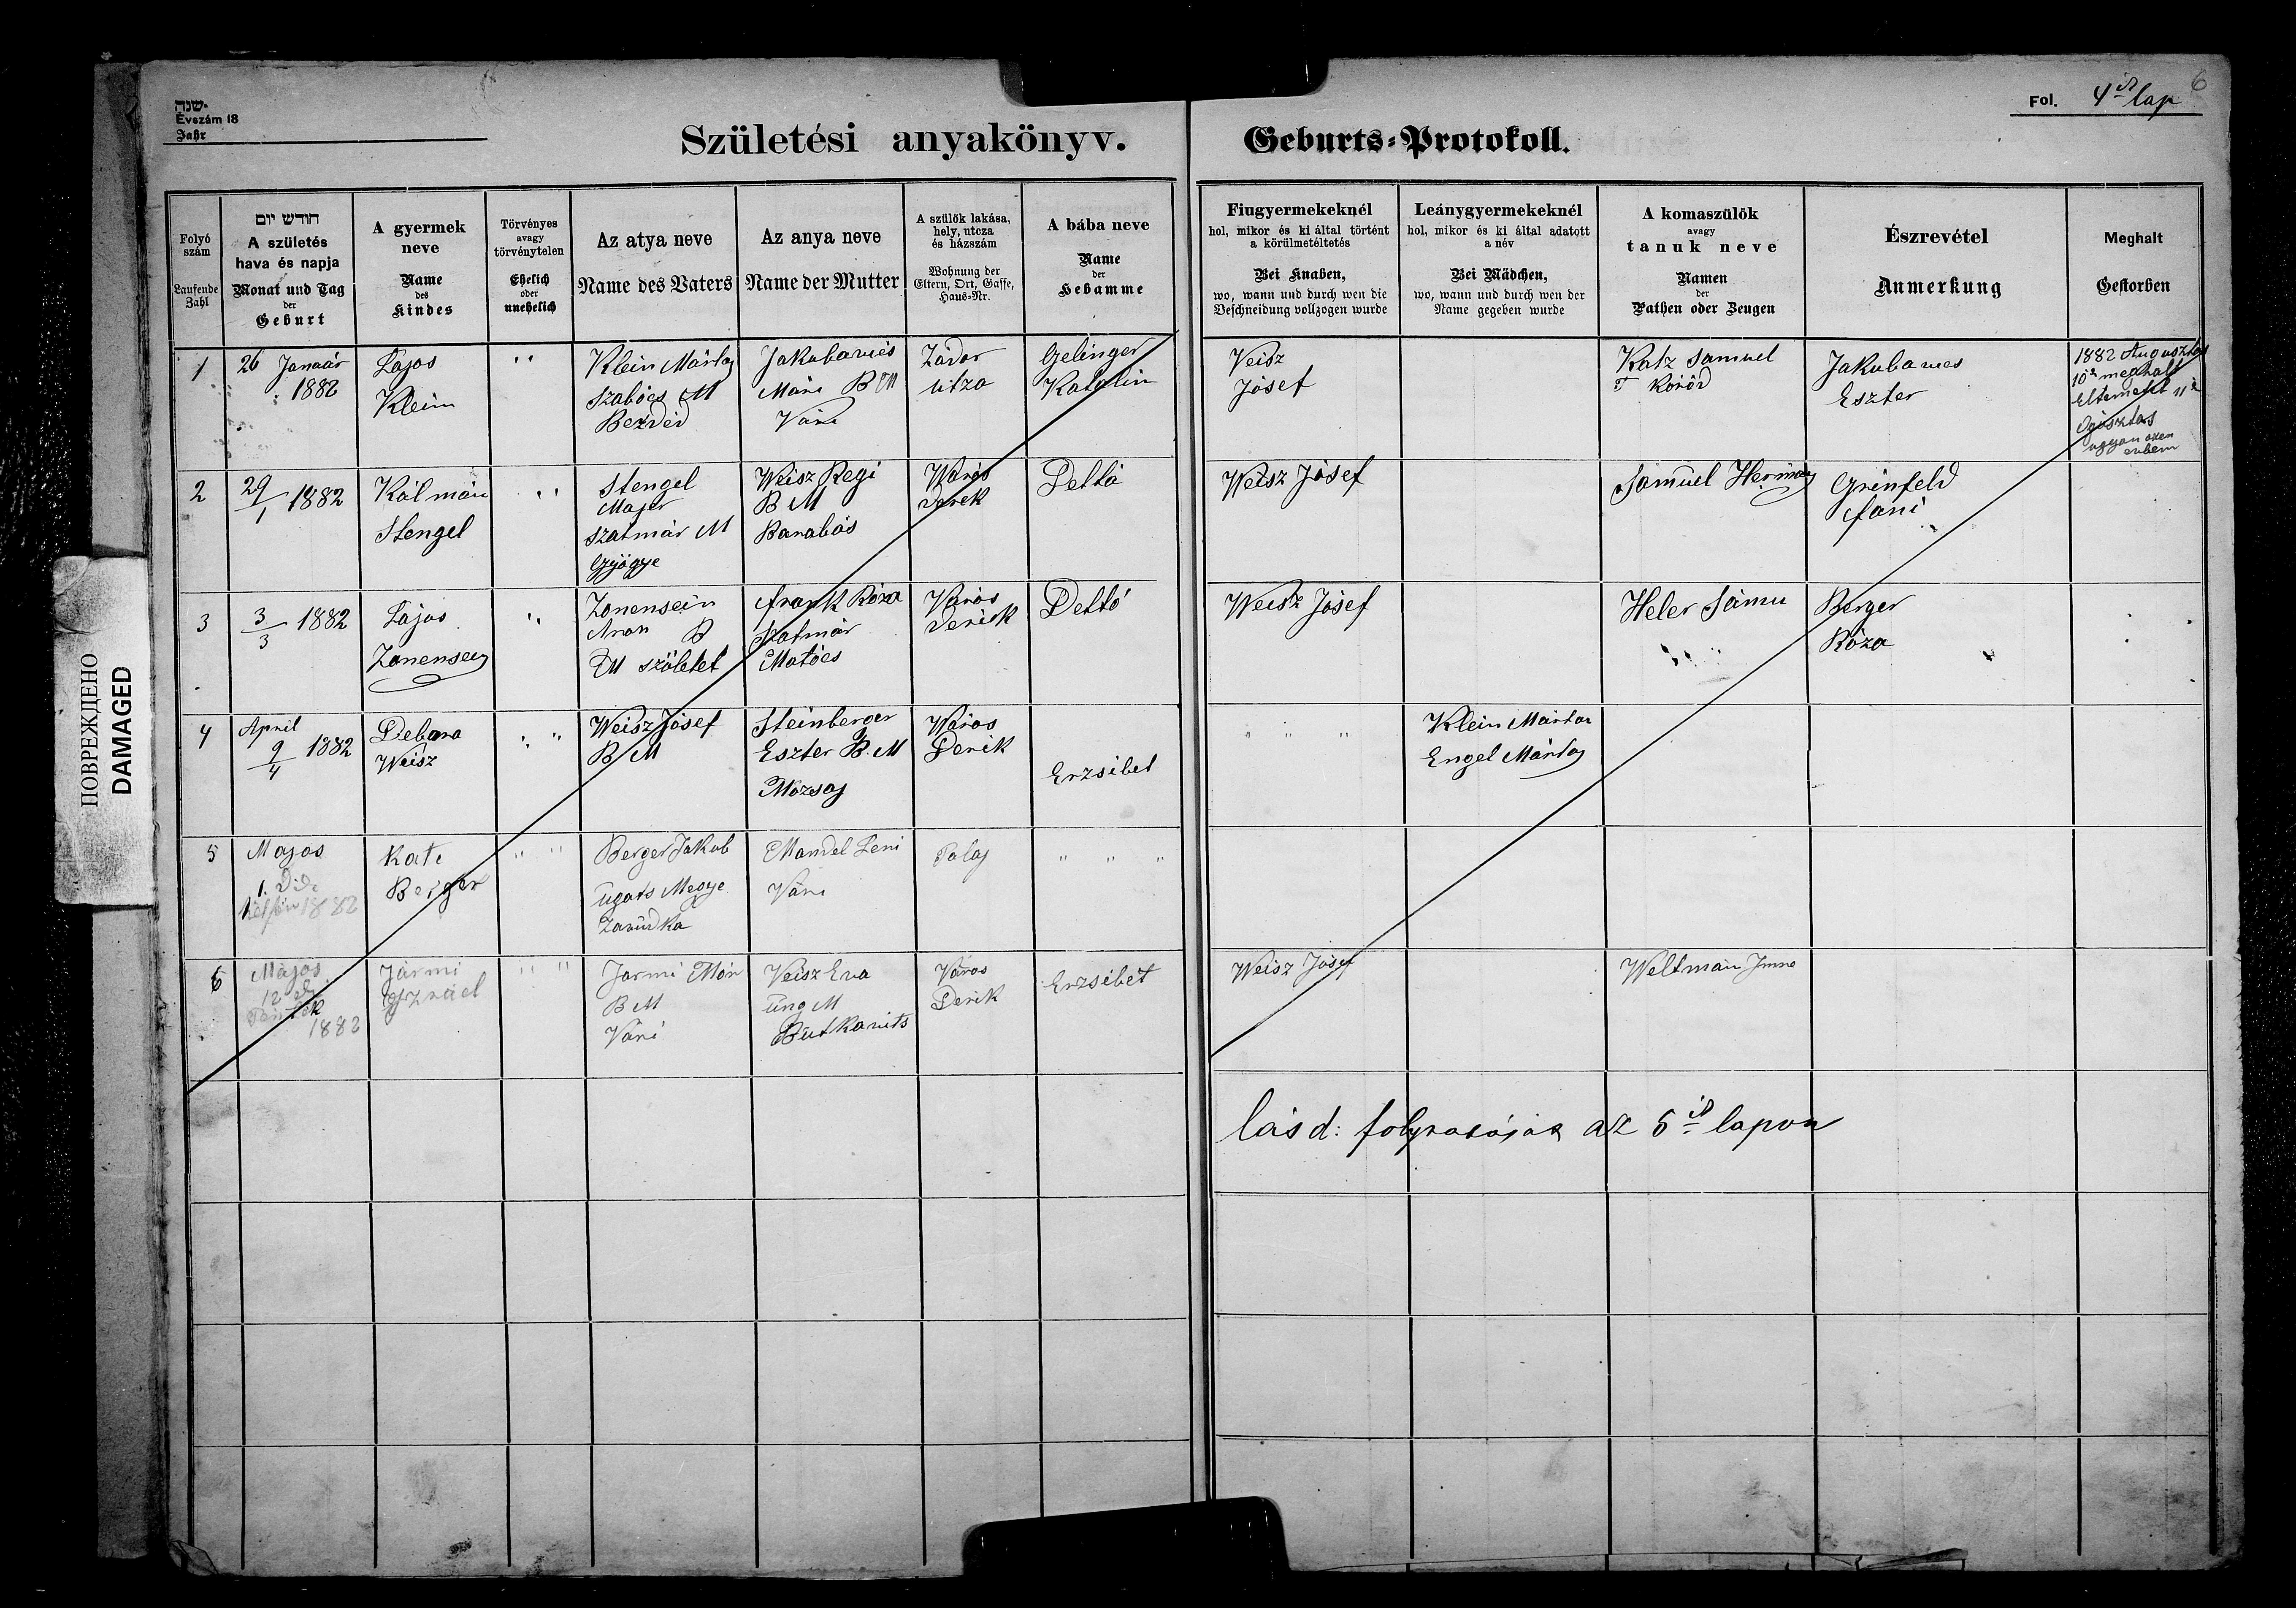 שנה
Évszám 18
Jahr
Fol. 4ik lap 6
Születési anyakönyv. Geburts-Protokoll.
Folyó szám
Laufende Zahl
חודש יום
A születés hava és napja
Monat und Tag
der
Geburt
A gyermek neve
Name
des
Kindes
Törvényes
avagy
törvénytelen
Ehelich
oder
unehelich
Az atya neve
Name des Vaters
Az anya neve
Name der Mutter
A szülők lakása,
hely, utcza
és házszám
Wohnung der
Eltern, Ort, Gasse,
Haus-Nr.
A bába neve
Name
der
Hebamme
Fiugyermekeknél
hol, mikor és ki által történt
a körülmetéltetés
Bei Knaben,
wo, wann und durch wen die
Beschneidung vollzogen wurde
Leánygyermekeknél
hol, mikor és ki által adatott
a név
Bei Mädchen,
wo, wann und durch wen der
Name gegeben wurde
A komaszülők
avagy
tanuk neve
Namen
der
Pathen oder Zeugen
Észrevétel
Anmerkung
Meghalt
Gestorben
1
26 Január
1882
Lajos
Klein
" "
Klein Márton
Szabócs M
Bezdéd
Jakubavics
Máni B M
Vári
Zádor
utza
Gelinger
Katalin
Veisz
Jósef
Katz Samuel
Jakubavies
Eszter
1882 Augusztus
10én meghalt
Eltemetet 11én
2
29/1 1882
Kálmán
Stengel
" "
Stengel
Majer
Szatmár M
Gyögye
Weisz Regi
B M
Barabás
Város
Derek
Dettó
Weisz Jósef
Sámuel Herman
Grünfeld
fáni
3
3/3 1882
Lajos
" "
Aron B
M születet
frank Róza
Szatmár
Matócs
Város
Derék
Dettó
Weisz Jósef
Heler Sámu
" "
Berger
Róza
4
April
9/4 1882
Debora
Weisz
" "
Weisz Jósef
B M
Steinberger
Eszter B. M
Város
Derék
Erzsébet
" " "
Klein Márton
Engel Márton
5
Majos
1882
Kati
Berger
" "
Berger Jakob
ugats Megye
Zavudka
Mandel Leni
Vári
" " "
6
Májos
12
1882
Jármi
Iszráel
" "
Jarmi Mór
B M
Vári
Veisz Eva
Ung M
Város
Derék
Erzsébet
Weisz Jósef
Weltman Imre
lásd: folytatását az 5ik lapon
ПОВРЕЖДЕНО
DAMAGED